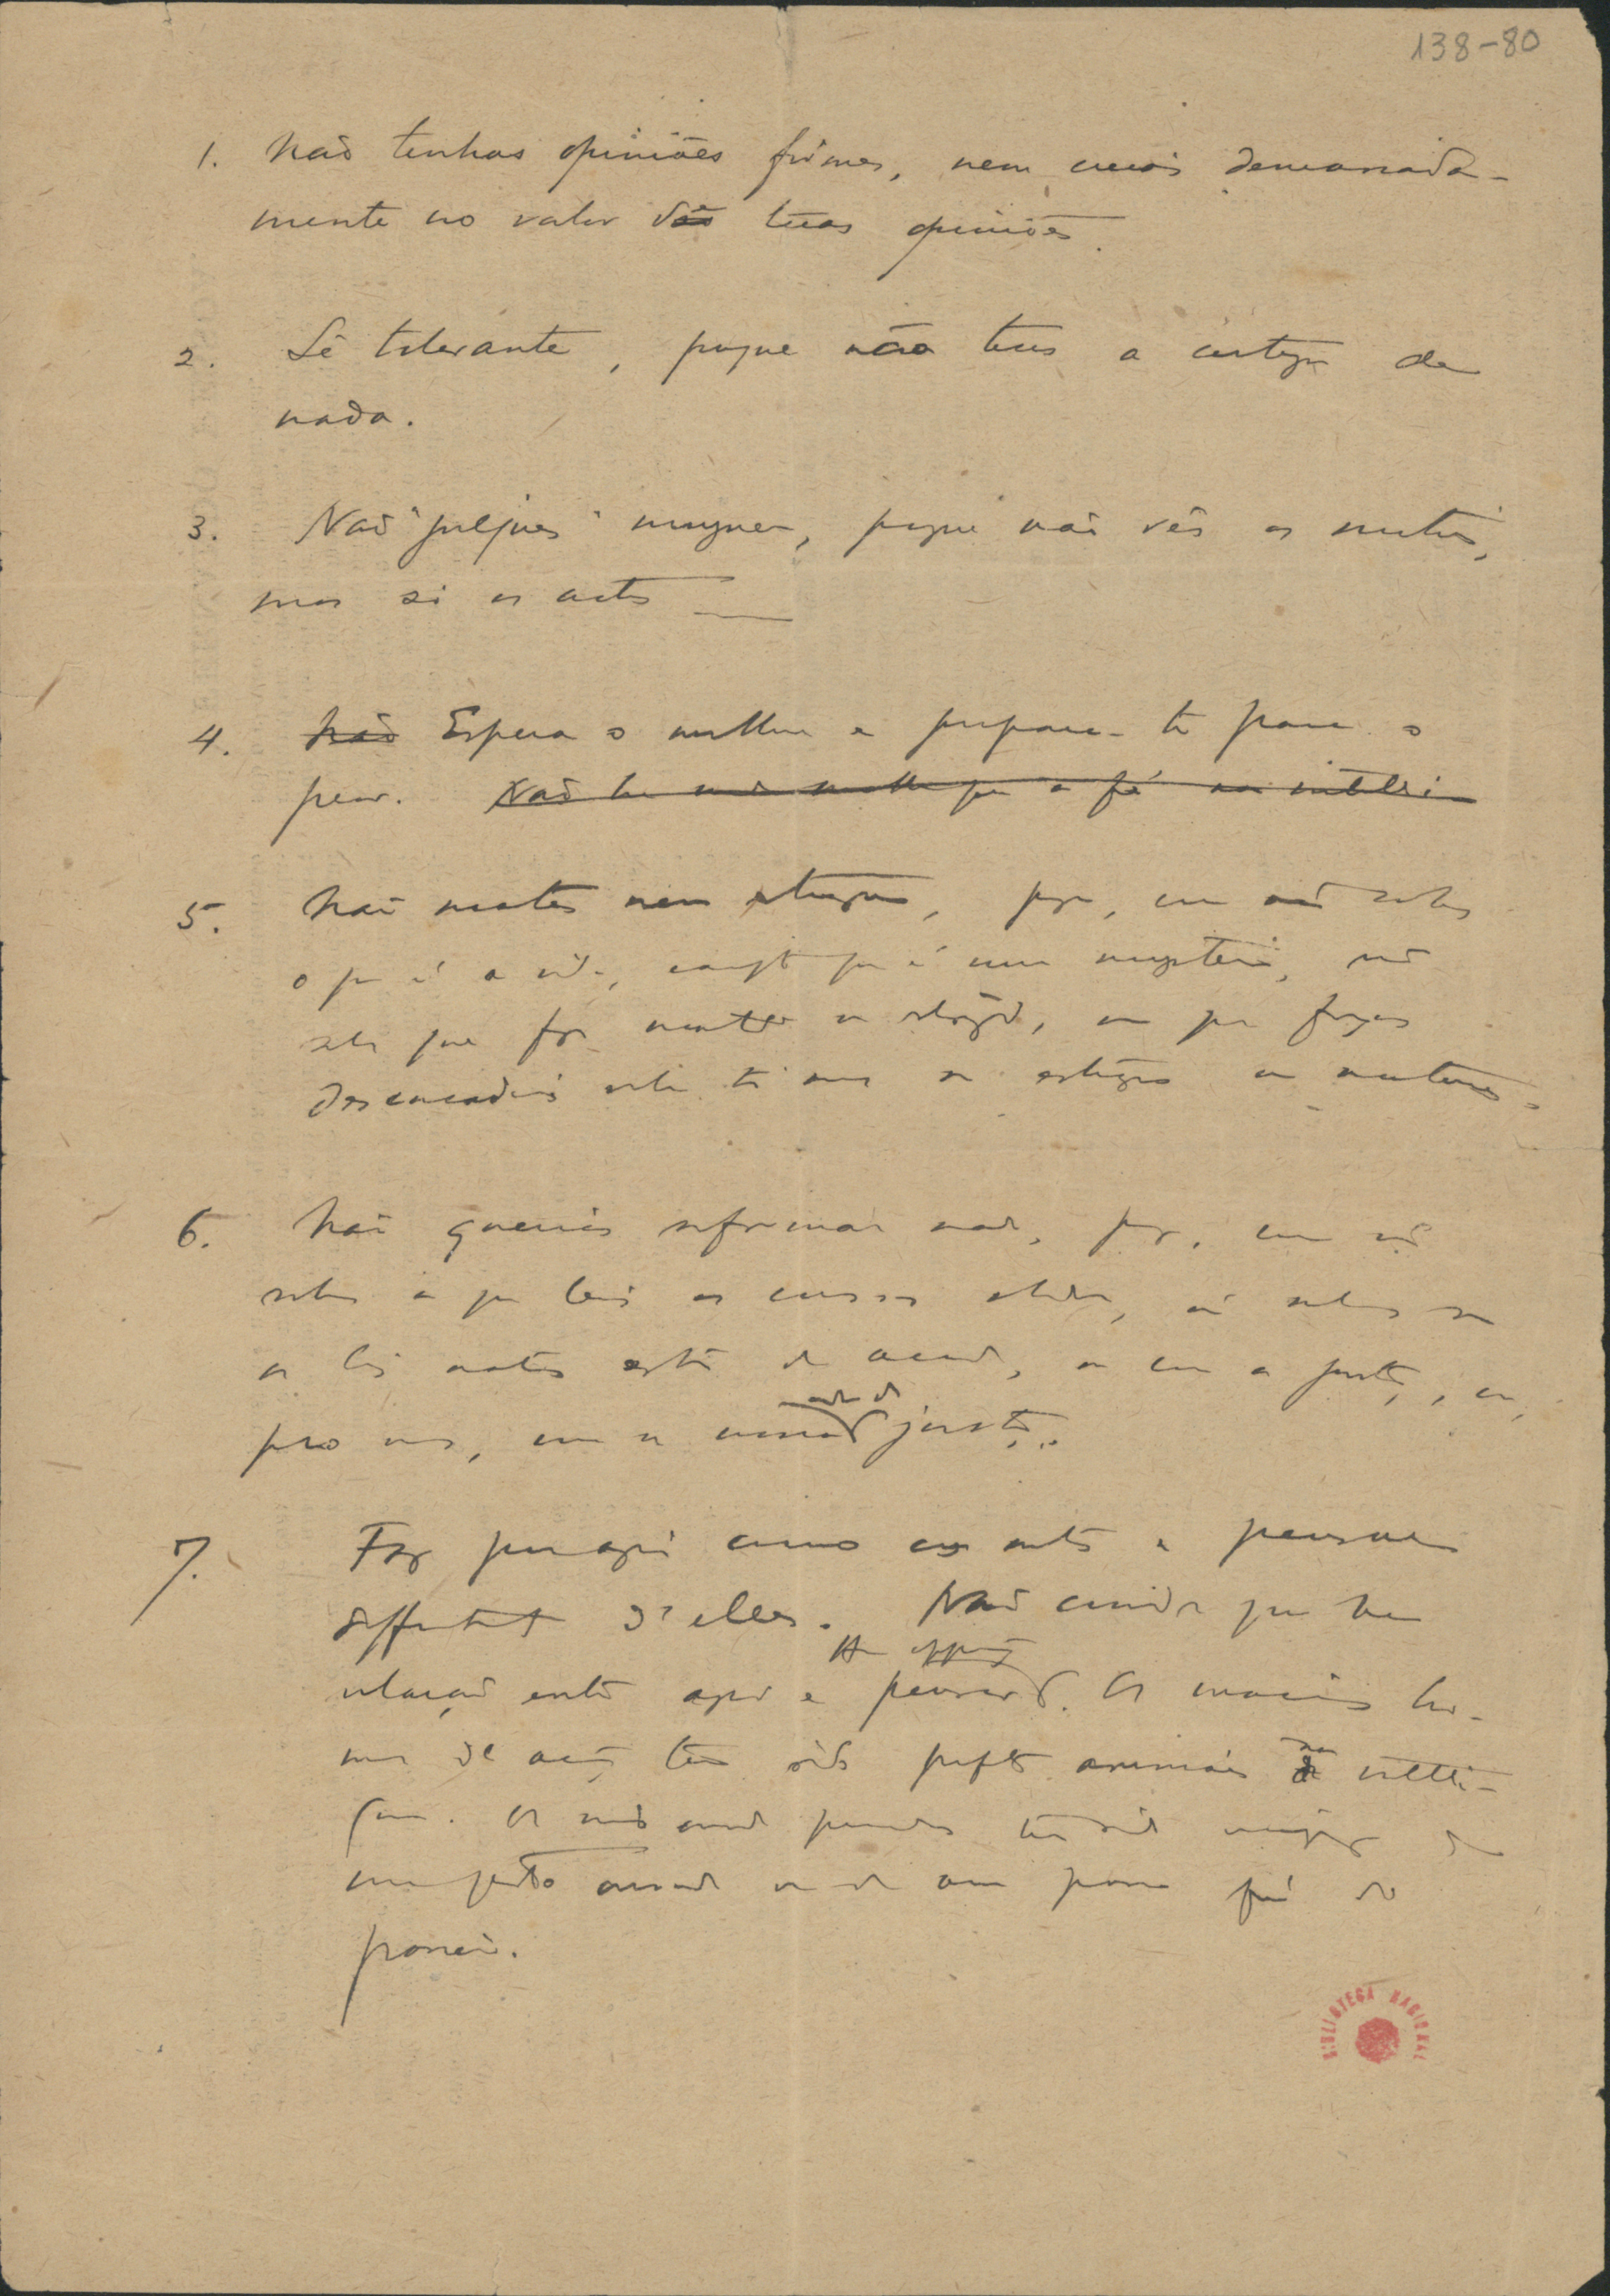 138-80
1. Não tenhas opiniões firmes, nem creias demasiada-
mente no valor de tuas opiniões.
2. Sê tolerante, porque não tens a certeza de
nada.
3. Não julgues ninguem, porque não vês os motivos,
mas só os actos
4. Não Espera o melhor e prepara-te para o
peor. Não ha que a fé na intelli
5. Não mates nem estragues, porque, como não sabes
o que é a vida, excepto que é um mysterio, não
sabes que fazes matando ou estragando, nem que forças
desencadeias sobre ti mesmo se estragares ou matares.
6. Não queiras reformar nada, porque, como não
sabes a que leis as cousas obedecem, não sabes se
as leis naturaes estão de accordo, ou com a justiça, ou,
pelo menos, com a nossa idéa de justiça.
7. Faz por agir como os outros e pensar
differentemente d'elles. Não cuides que ha
relação entre agir e pensar. Ha opposição. Os maiores ho-
mens de acção teem sido perfeitos animaes na intelli-
gencia. Os mais
BIBLIOTECA NACIONAL